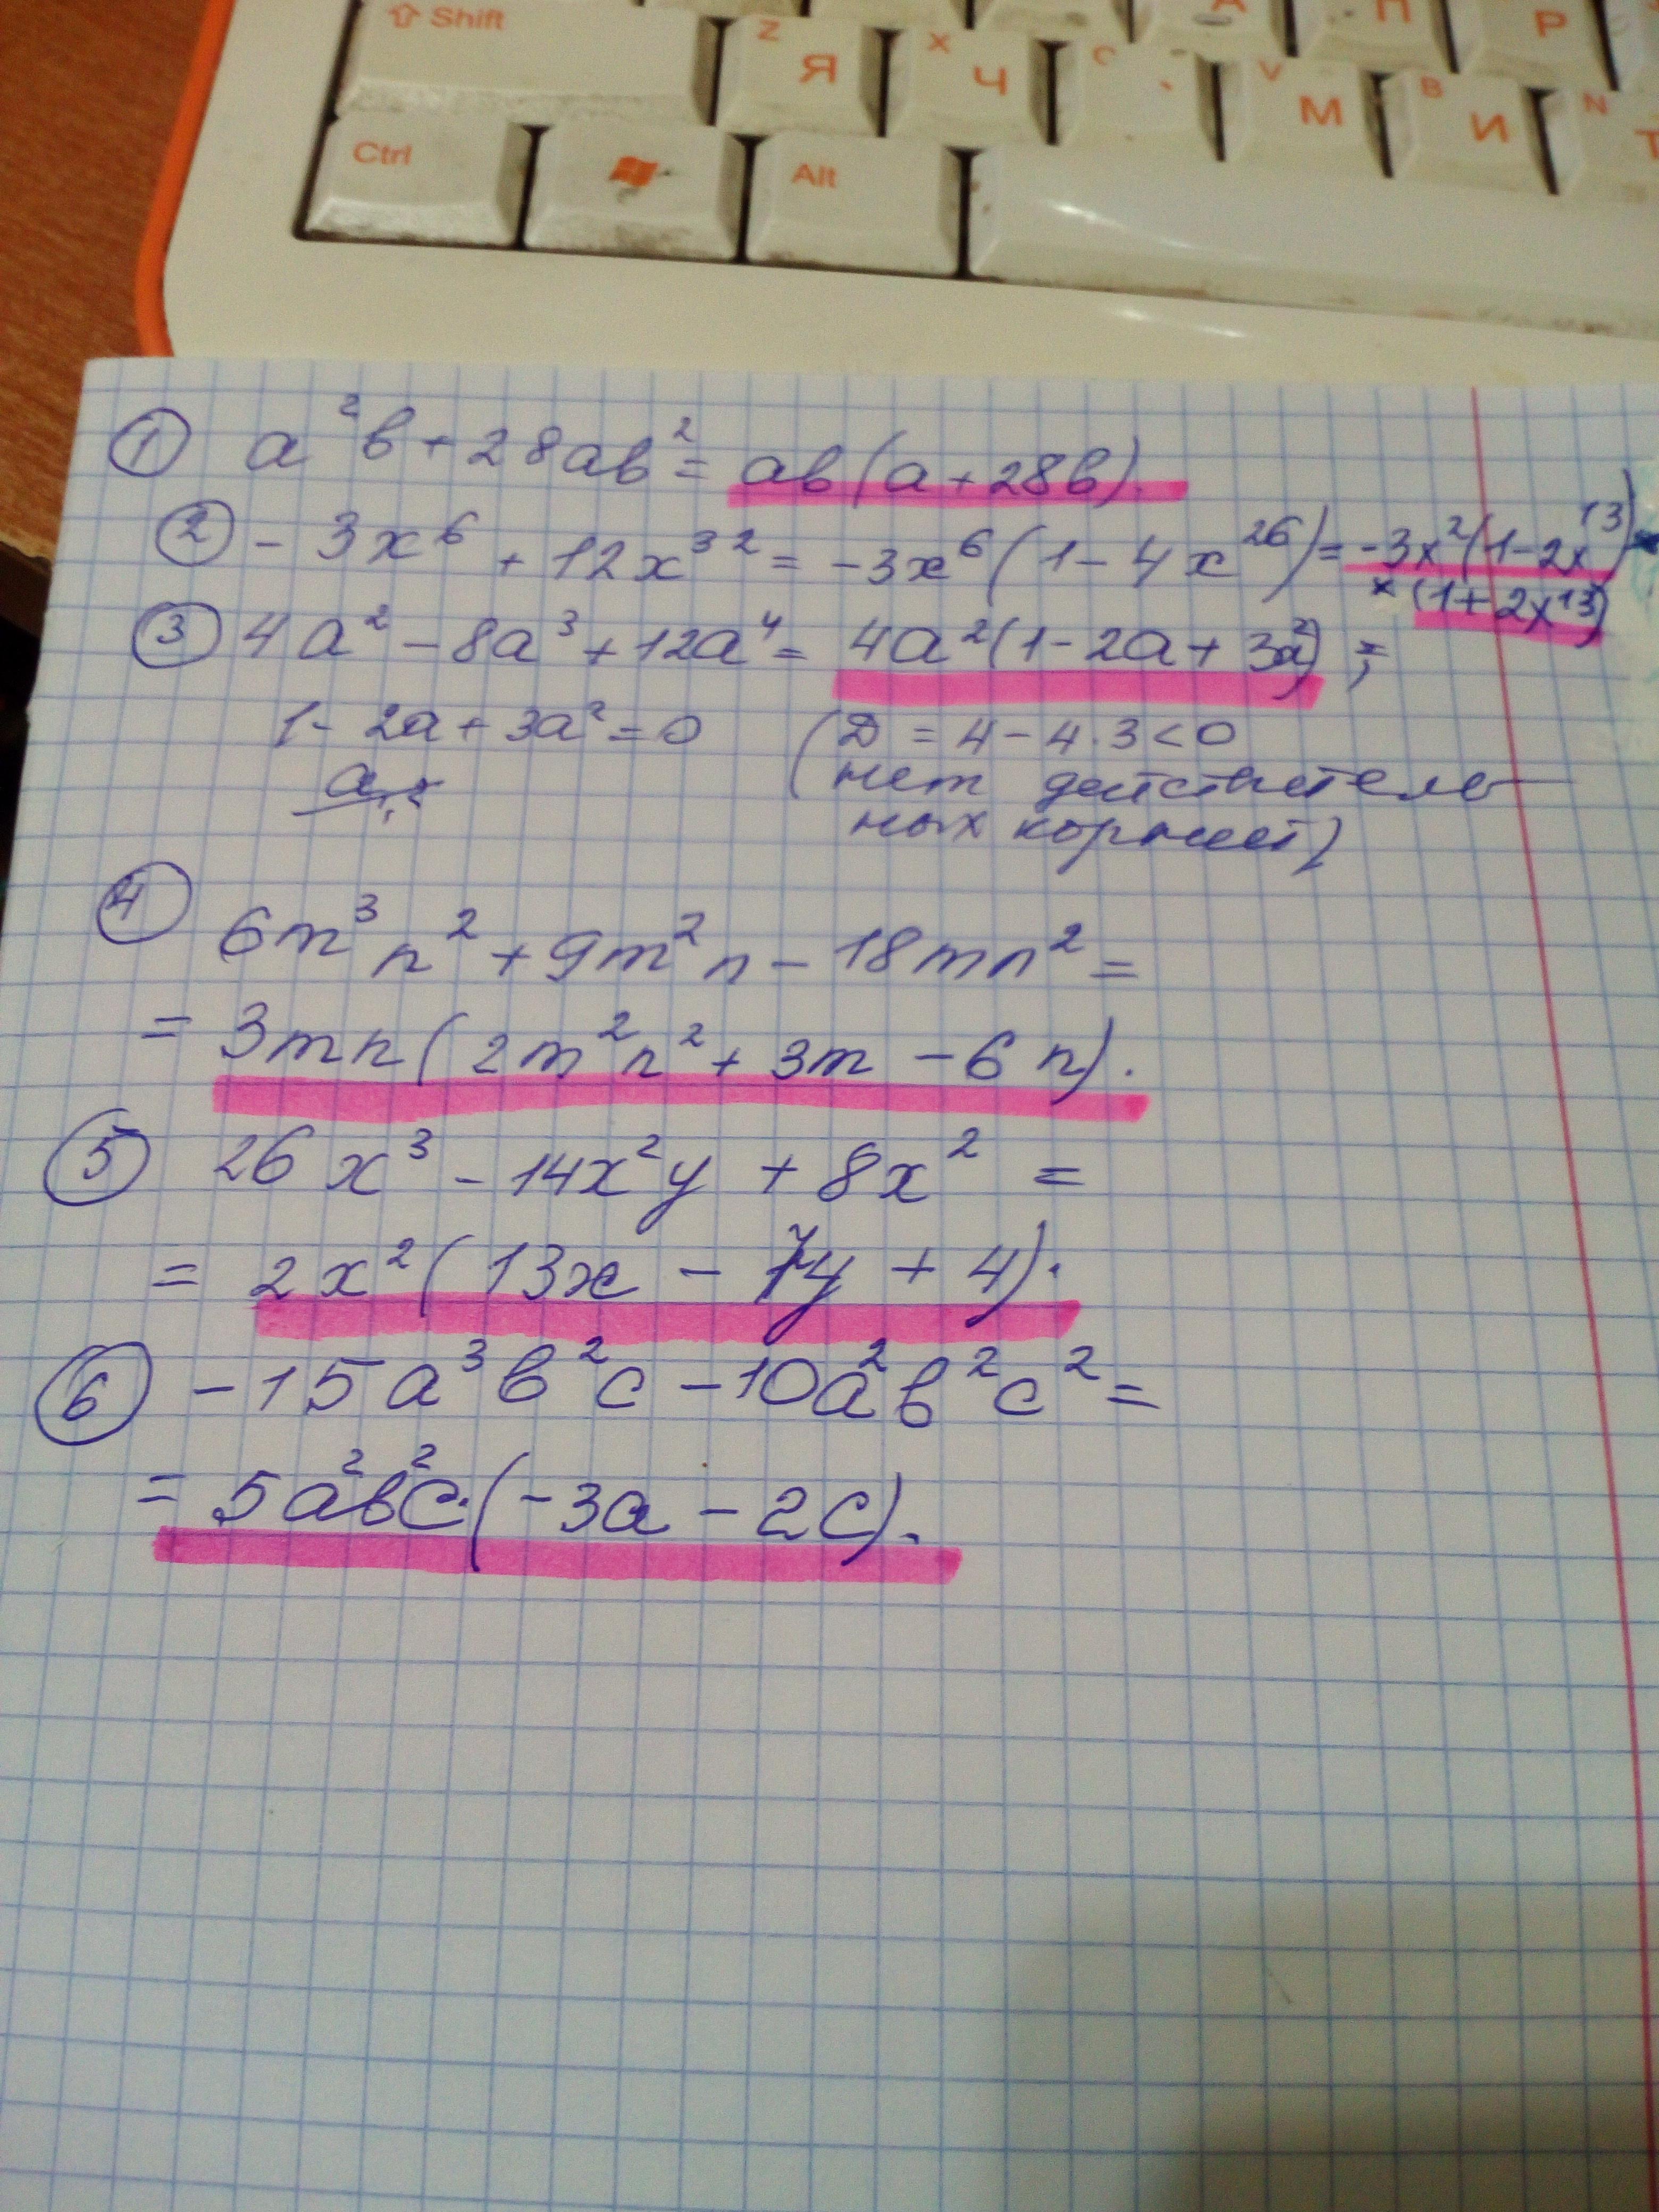 ⇧ Shift
Z Я X Ч C V М B И N Т
А П Р
Ctrl Alt
① a²b + 28ab² = ab(a + 28b).
② - 3x⁶ + 12x³² = -3x⁶(1 - 4x²⁶) = -3x²(1 - 2x¹³) ×
× (1 + 2x¹³)
③ 4a² - 8a³ + 12a⁴ = 4a²(1 - 2a + 3a²) ;
1 - 2a + 3a² = 0 (D = 4 - 4·3 < 0
нет действитель
ных корней)
④ 6m³n² + 9m²n - 18mn² =
= 3mn(2m²n² + 3m - 6n).
⑤ 26x³ - 14x²y + 8x² =
= 2x²(13x - 7y + 4).
⑥ - 15a³b²c - 10a²b²c² =
= 5a²b²c·(-3a - 2c).